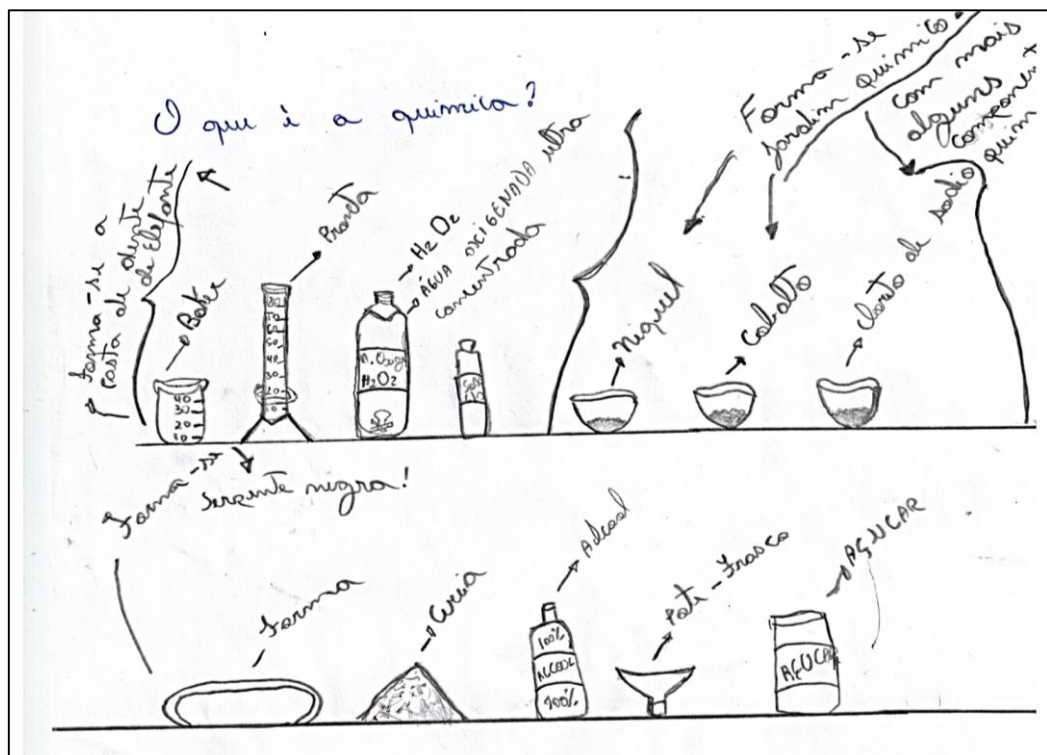 O que é a química?
Forma-se a
Pasta de dente
de Elefante
Beker
Pronta
H2O2
ÁGUA OXIGENADA ultra
concentrada
40
30
20
10
H2O2
Forma-se
Jardim químico
com mais
alguns
component
quim
Niquel
Cobalto
Cloreto de sódio
Forma-se
Serpente negra!
Forma
Areia
Álcool
100%
ALCOOL
100%
Pote-Frasco
AÇUCAR
AÇUCAR